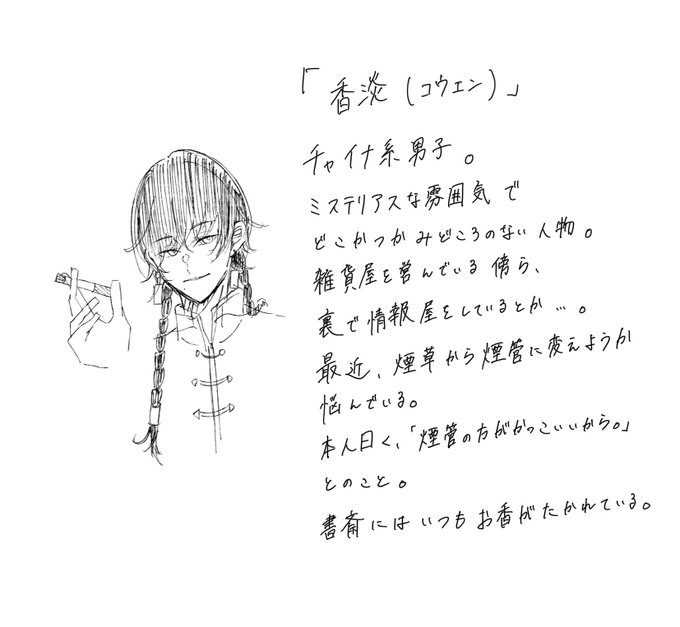 「香淡(コウエン)」
チャイナ系男子。
ミステリアスな雰囲気で
どこかつかみどころのない人物。
雑貨屋を営んでいる傍ら、
裏で情報屋をしているとか…。
最近、煙草から煙管に変えようか
悩んでいる。
本人曰く、「煙管の方がかっこいいから。」
とのこと。
書斎にはいつもお香がたかれている。